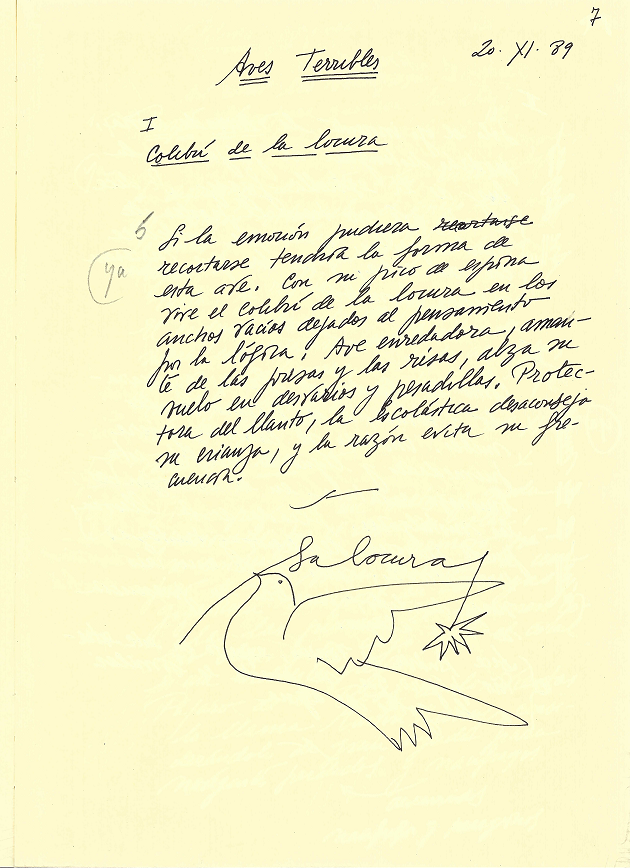 7
Aves Terribles
20. XI. 89
I
Colibrí de la locura
5
ya
Si la emoción pudiera recortarse
recortarse tendría la forma de
esta ave. Con su pico de espina
vive el colibrí de la locura en los
anchos vacíos dejados al pensamiento
por la lógica. Ave enredadora, aman-
te de las prisas y las risas, alza su
vuelo en desvaríos y pesadillas. Protec-
tora del llanto, la escolástica desaconseja
su crianza, y la razón evita su fre-
cuencia.
La locura